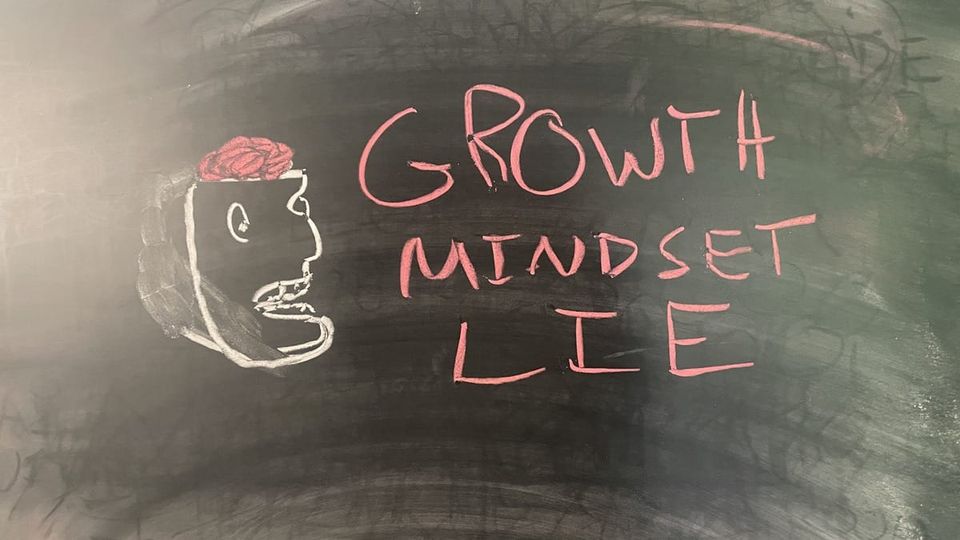 GROWTH
MINDSET
LIE